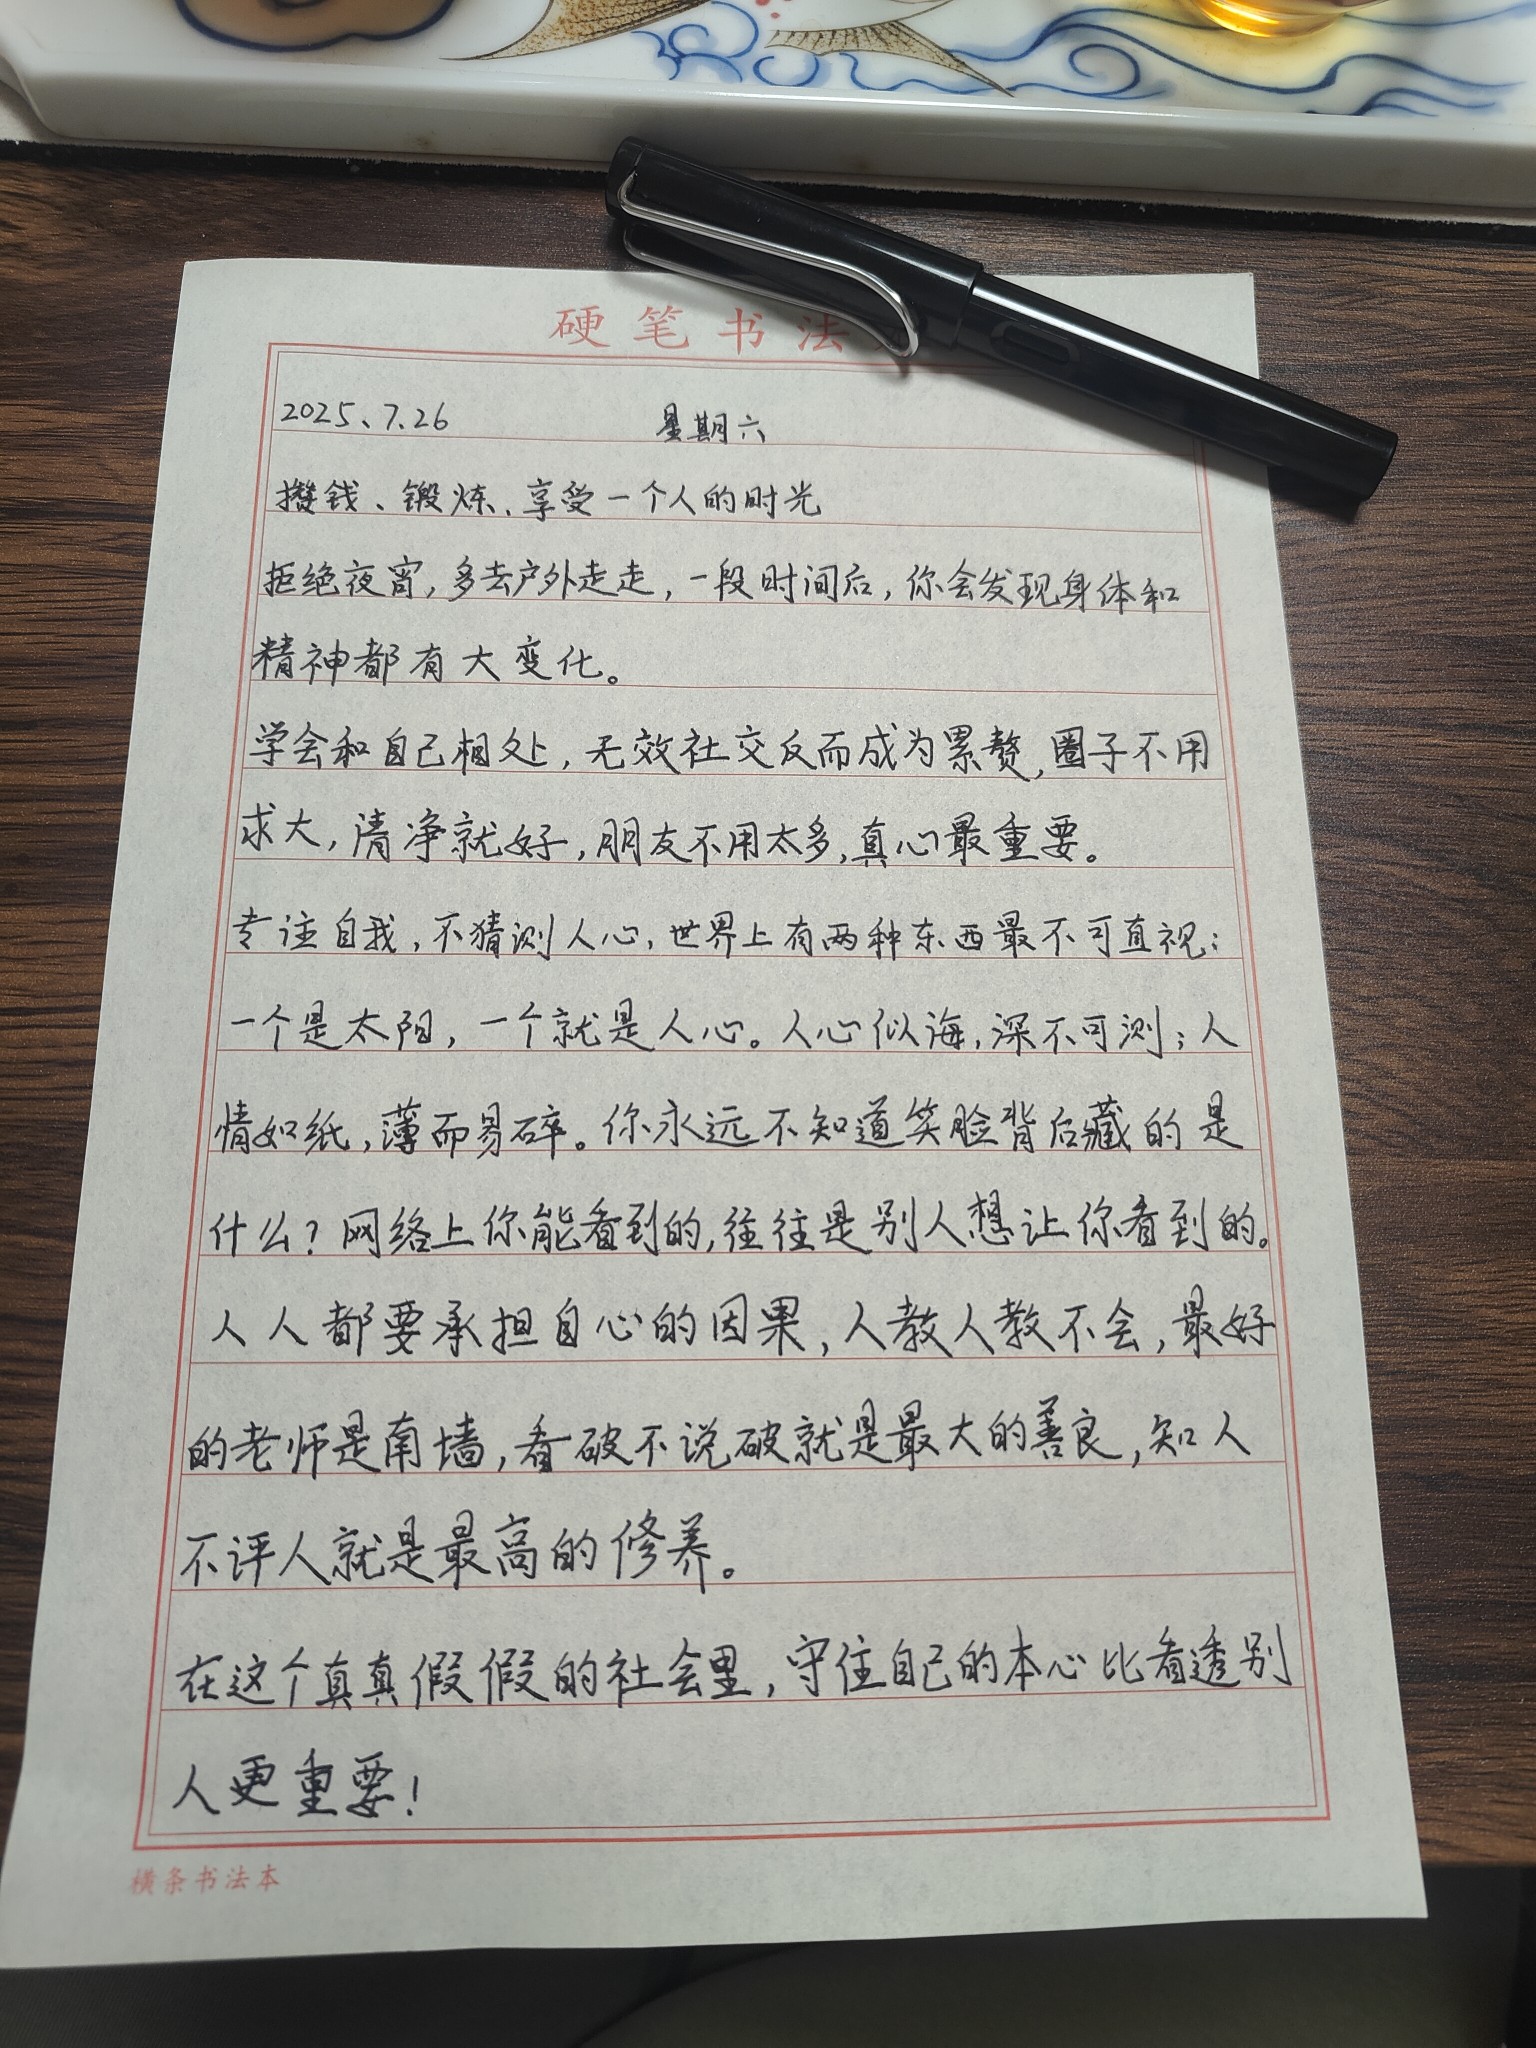 硬笔书法
2025、7.26 星期六
攒钱、锻炼、享受一个人的时光
拒绝夜宵，多去户外走走，一段时间后，你会发现身体和
精神都有大变化。
学会和自己相处，无效社交反而成为累赘，圈子不用
求大，清净就好，朋友不用太多，真心最重要。
专注自我，不猜测人心，世界上有两种东西最不可直视：
一个是太阳，一个就是人心。人心似海，深不可测；人
情如纸，薄而易碎。你永远不知道笑脸背后藏的是
什么？网络上你能看到的，往往是别人想让你看到的。
人人都要承担自心的因果，人教人教不会，最好
的老师是南墙，看破不说破就是最大的善良，知人
不评人就是最高的修养。
在这个真真假假的社会里，守住自己的本心比看透别
人更重要！
横条书法本